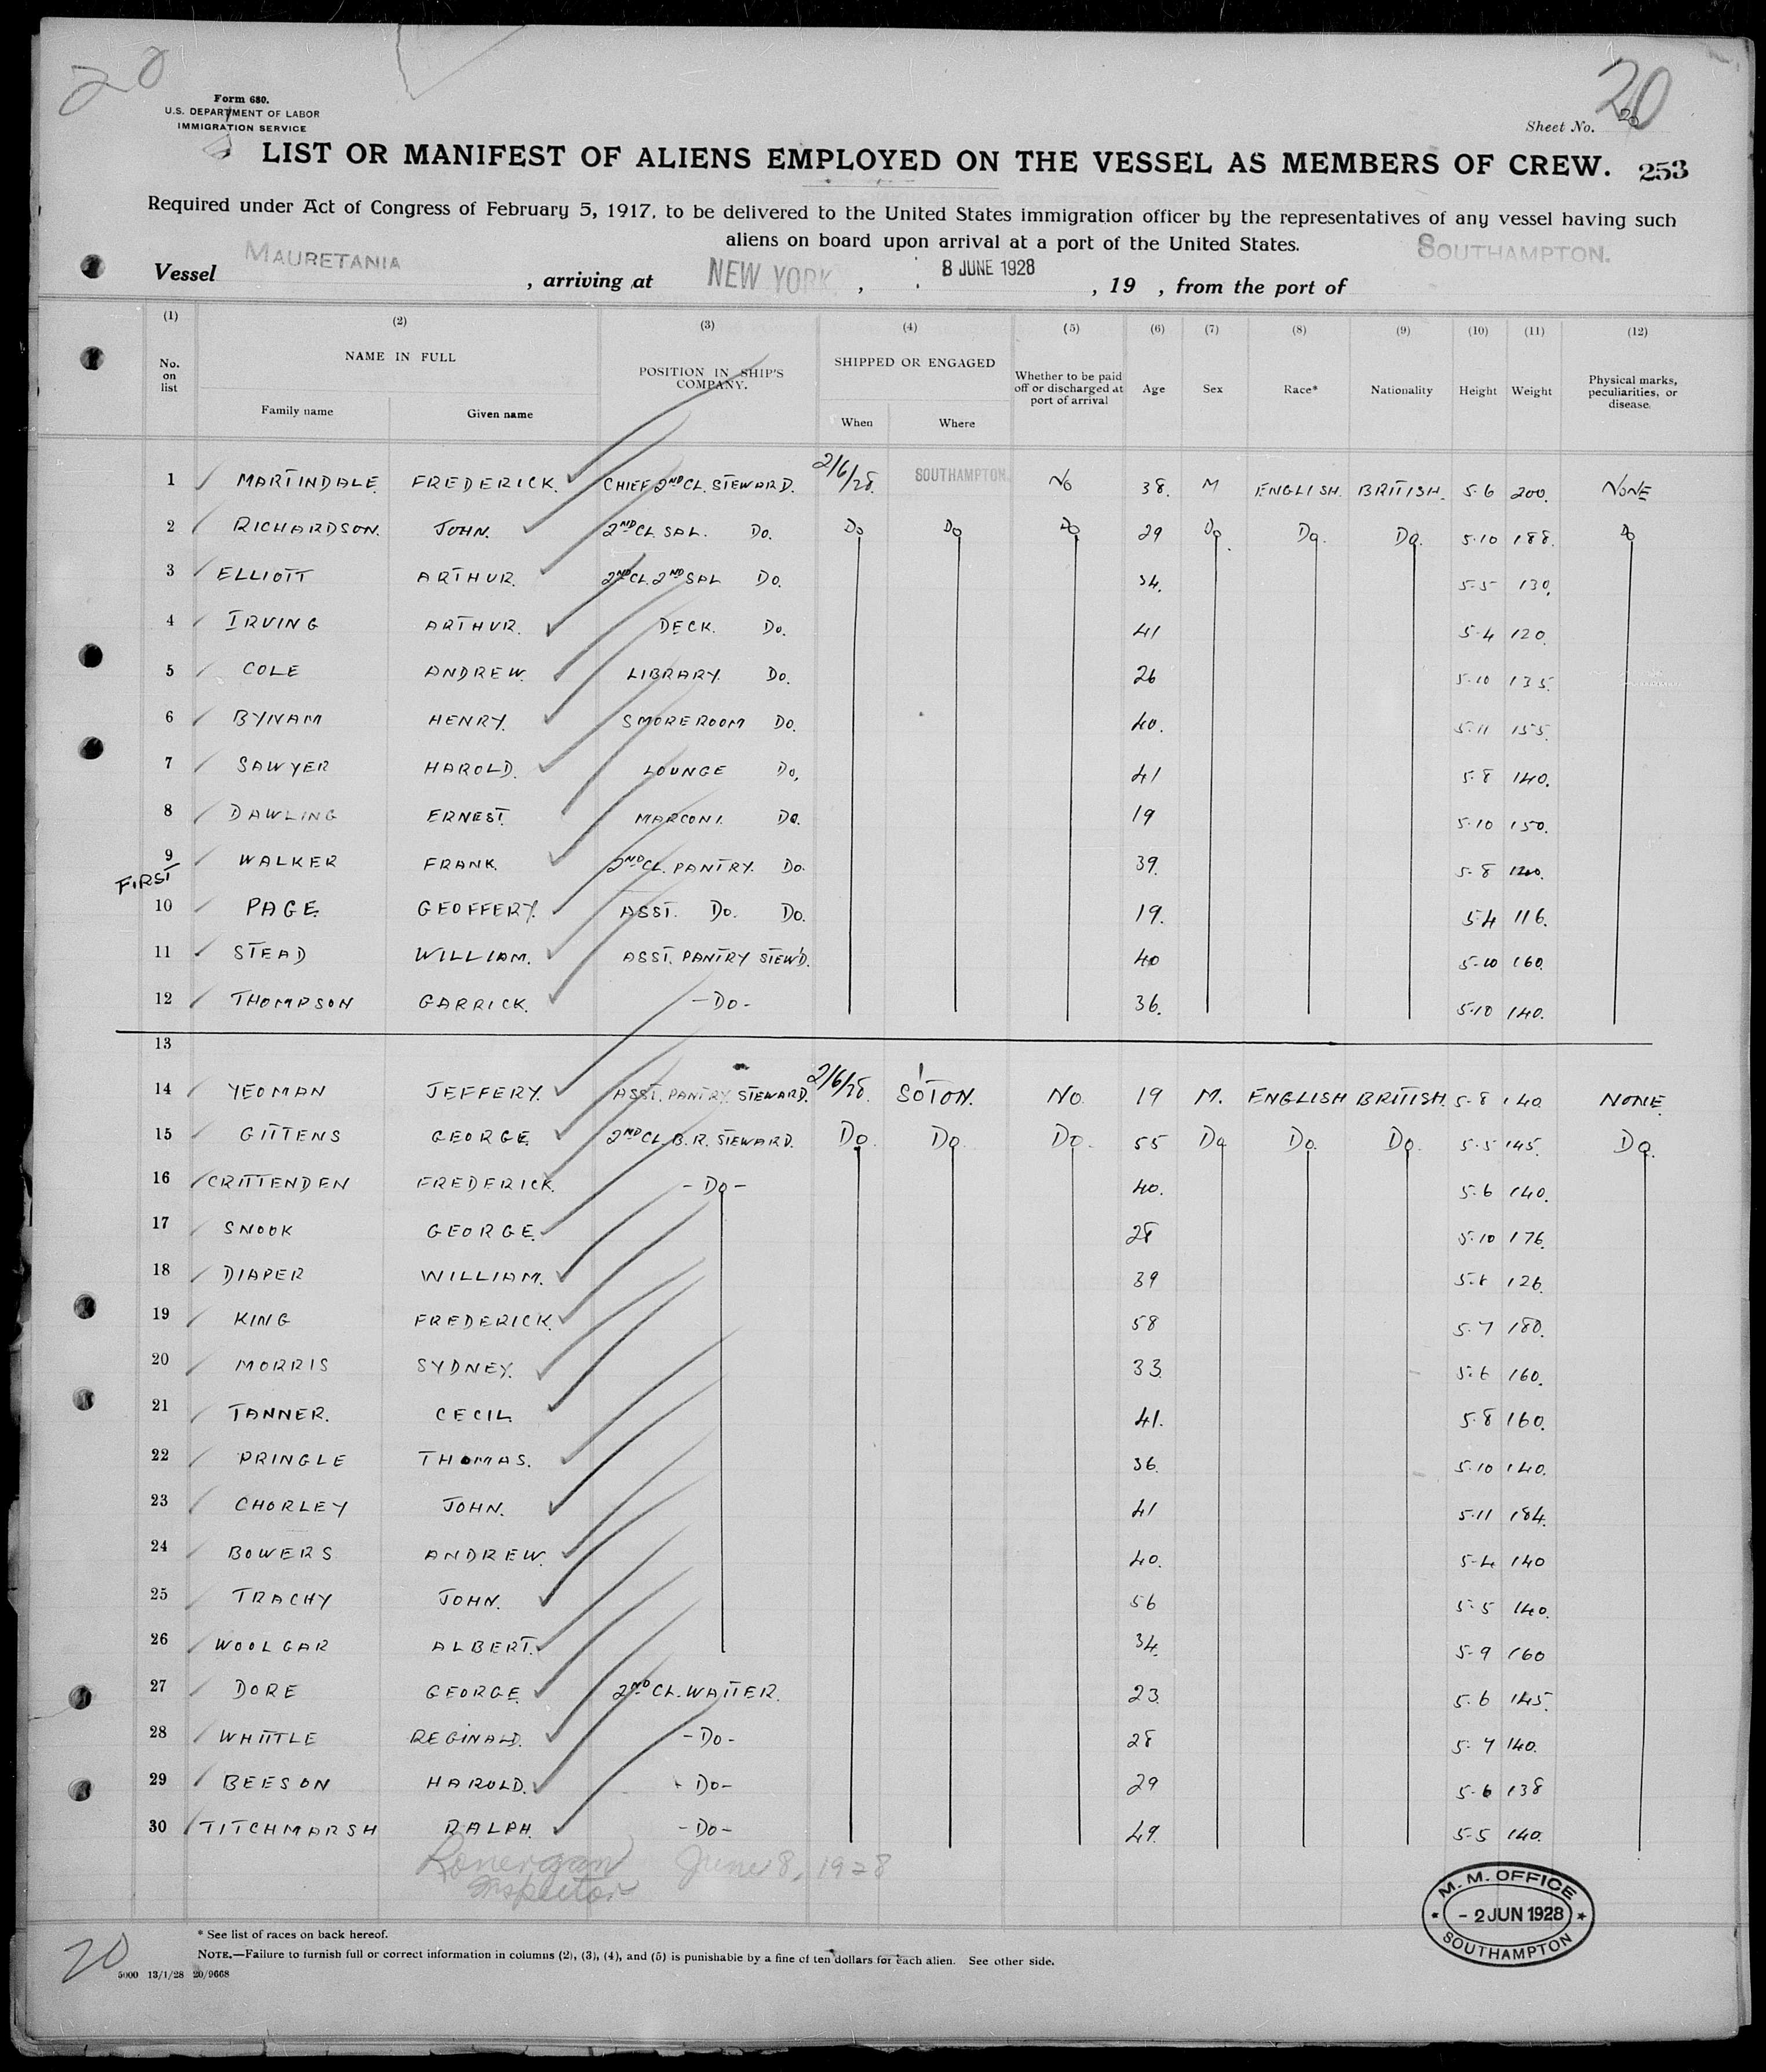 20
20
Form 680.
U.S. DEPARTMENT OF LABOR
IMMIGRATION SERVICE
Sheet No. 20
LIST OR MANIFEST OF ALIENS EMPLOYED ON THE VESSEL AS MEMBERS OF CREW. 253
Required under Act of Congress of February 5, 1917, to be delivered to the United States immigration officer by the representatives of any vessel having such
aliens on board upon arrival at a port of the United States.
Vessel MAURETANIA, arriving at NEW YORK, 8 JUNE 1928, 19 , from the port of SOUTHAMPTON.
(1) (2) (3) (4) (5) (6) (7) (8) (9) (10) (11) (12)
No. on list NAME IN FULL POSITION IN SHIP'S COMPANY. SHIPPED OR ENGAGED Whether to be paid off or discharged at port of arrival Age Sex Race* Nationality Height Weight Physical marks, peculiarities, or disease.
Family name Given name When Where
1 MARTINDALE FREDERICK. CHIEF 2ND CL. STEWARD. 2/6/28. SOUTHAMPTON No 38. M ENGLISH. BRITISH. 5.6 200. NONE
2 RICHARDSON. JOHN. 2ND CL. SAL. Do. Do Do Do 29 Do. Do. Do. 5.10 188. Do
3 ELLIOTT ARTHUR. 2ND CL. 2ND SAL Do. 34. 5-5 130.
4 IRVING ARTHUR. DECK. Do. 41 5.4 120.
5 COLE ANDREW. LIBRARY. Do. 26 5.10 135.
6 BYNAM HENRY. SMOREROOM Do. 40. 5.11 155.
7 SAWYER HAROLD. LOUNGE Do, 41 5.8 140.
8 DAWLING ERNEST. MARCONI. Do. 19 5.10 150.
9 WALKER FRANK. 2ND CL. PANTRY. Do. 39. 5.8
FIRST
10 PAGE. GEOFFERY. ASST. Do. Do. 19. 5.4 116.
11 STEAD WILLIAM. ASST. PANTRY STEW'D. 40 5.10 160.
12 THOMPSON GARRICK. -Do- 36. 5.10 140.
13
14 YEOMAN JEFFERY. ASST. PANTRY STEWARD. 2/6/28. SO'TON. No. 19 M. ENGLISH BRITISH. 5.8 140 NONE.
15 GITTENS GEORGE. 2ND CL. B.R. STEWARD. Do. Do. Do. 55 Do Do. Do. 5.5 145. Do.
16 CRITTENDEN FREDERICK. -Do- 40. 5.6 140.
17 SNOOK GEORGE. 28 5.10 176.
18 DIAPER WILLIAM. 39 126.
19 KING FREDERICK. 58 5.7 180.
20 MORRIS SYDNEY. 33. 5.6 160.
21 TANNER. CECIL. 41. 5.8 160.
22 PRINGLE THOMAS. 36. 5.10 140.
23 CHORLEY JOHN. 41 5.11 184.
24 BOWERS ANDREW. 40. 5-4 140
25 TRACHY JOHN. 56 5.5 140.
26 WOOLGAR ALBERT. 34. 5-9 160
27 DORE GEORGE. 2ND CL. WAITER. 23. 5.6 145.
28 WHITTLE REGINALD. -Do- 28 5.7 140.
29 BEESON HAROLD. -Do- 29 5-6 138
30 TITCHMARSH RALPH. -Do- 49. 5-5 140.
Lonergan June 8, 1928
Inspector
M. M. OFFICE
- 2 JUN 1928
SOUTHAMPTON
* See list of races on back hereof.
NOTE.—Failure to furnish full or correct information in columns (2), (3), (4), and (5) is punishable by a fine of ten dollars for each alien. See other side.
20
5000 13/1/28 20/9668